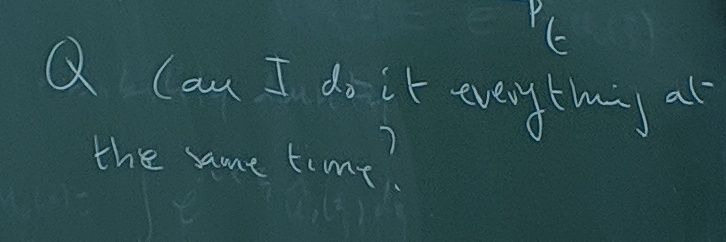 Q Can I do it everything at
the same time?